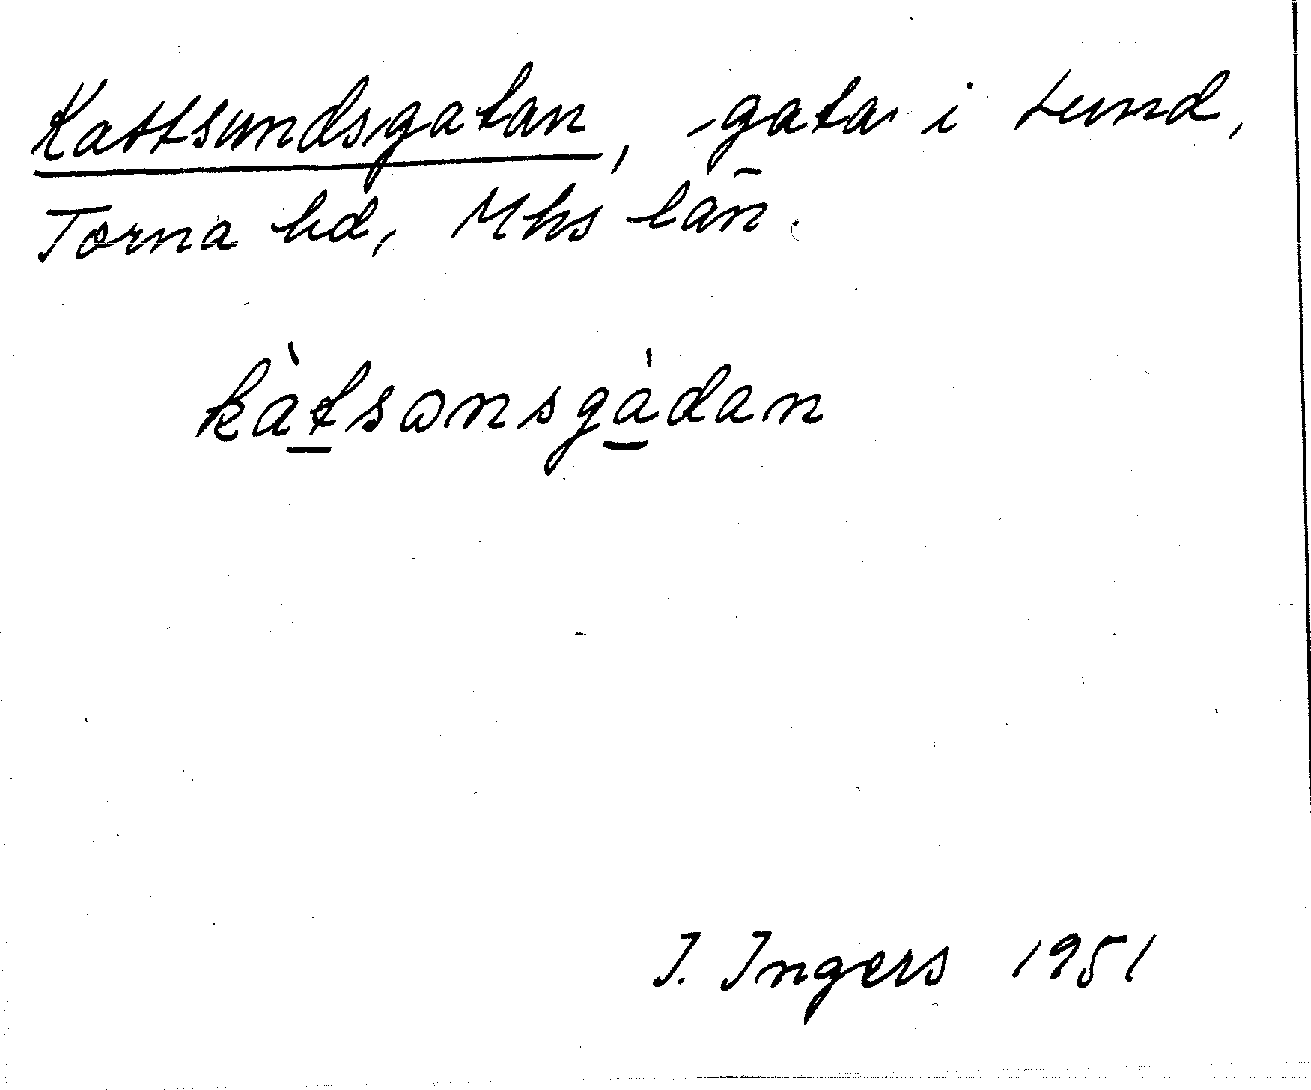 Kattsundsgatan, gata i Lund,
Torna hd, Mhs län.
kàtsωnsgàdan
I. Ingers 1951